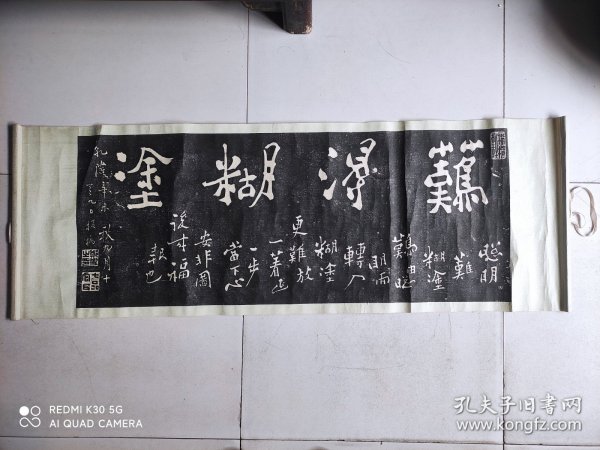 難得糊塗
聰明
難
糊塗
難由聰
明而
轉入
糊塗
更難放
一著退
一步
當下心
安非圖
後來福
報也
乾隆辛未秋九月十
有九日板橋
REDMI K30 5G
AI QUAD CAMERA
孔夫子旧书网
www.kongfz.com